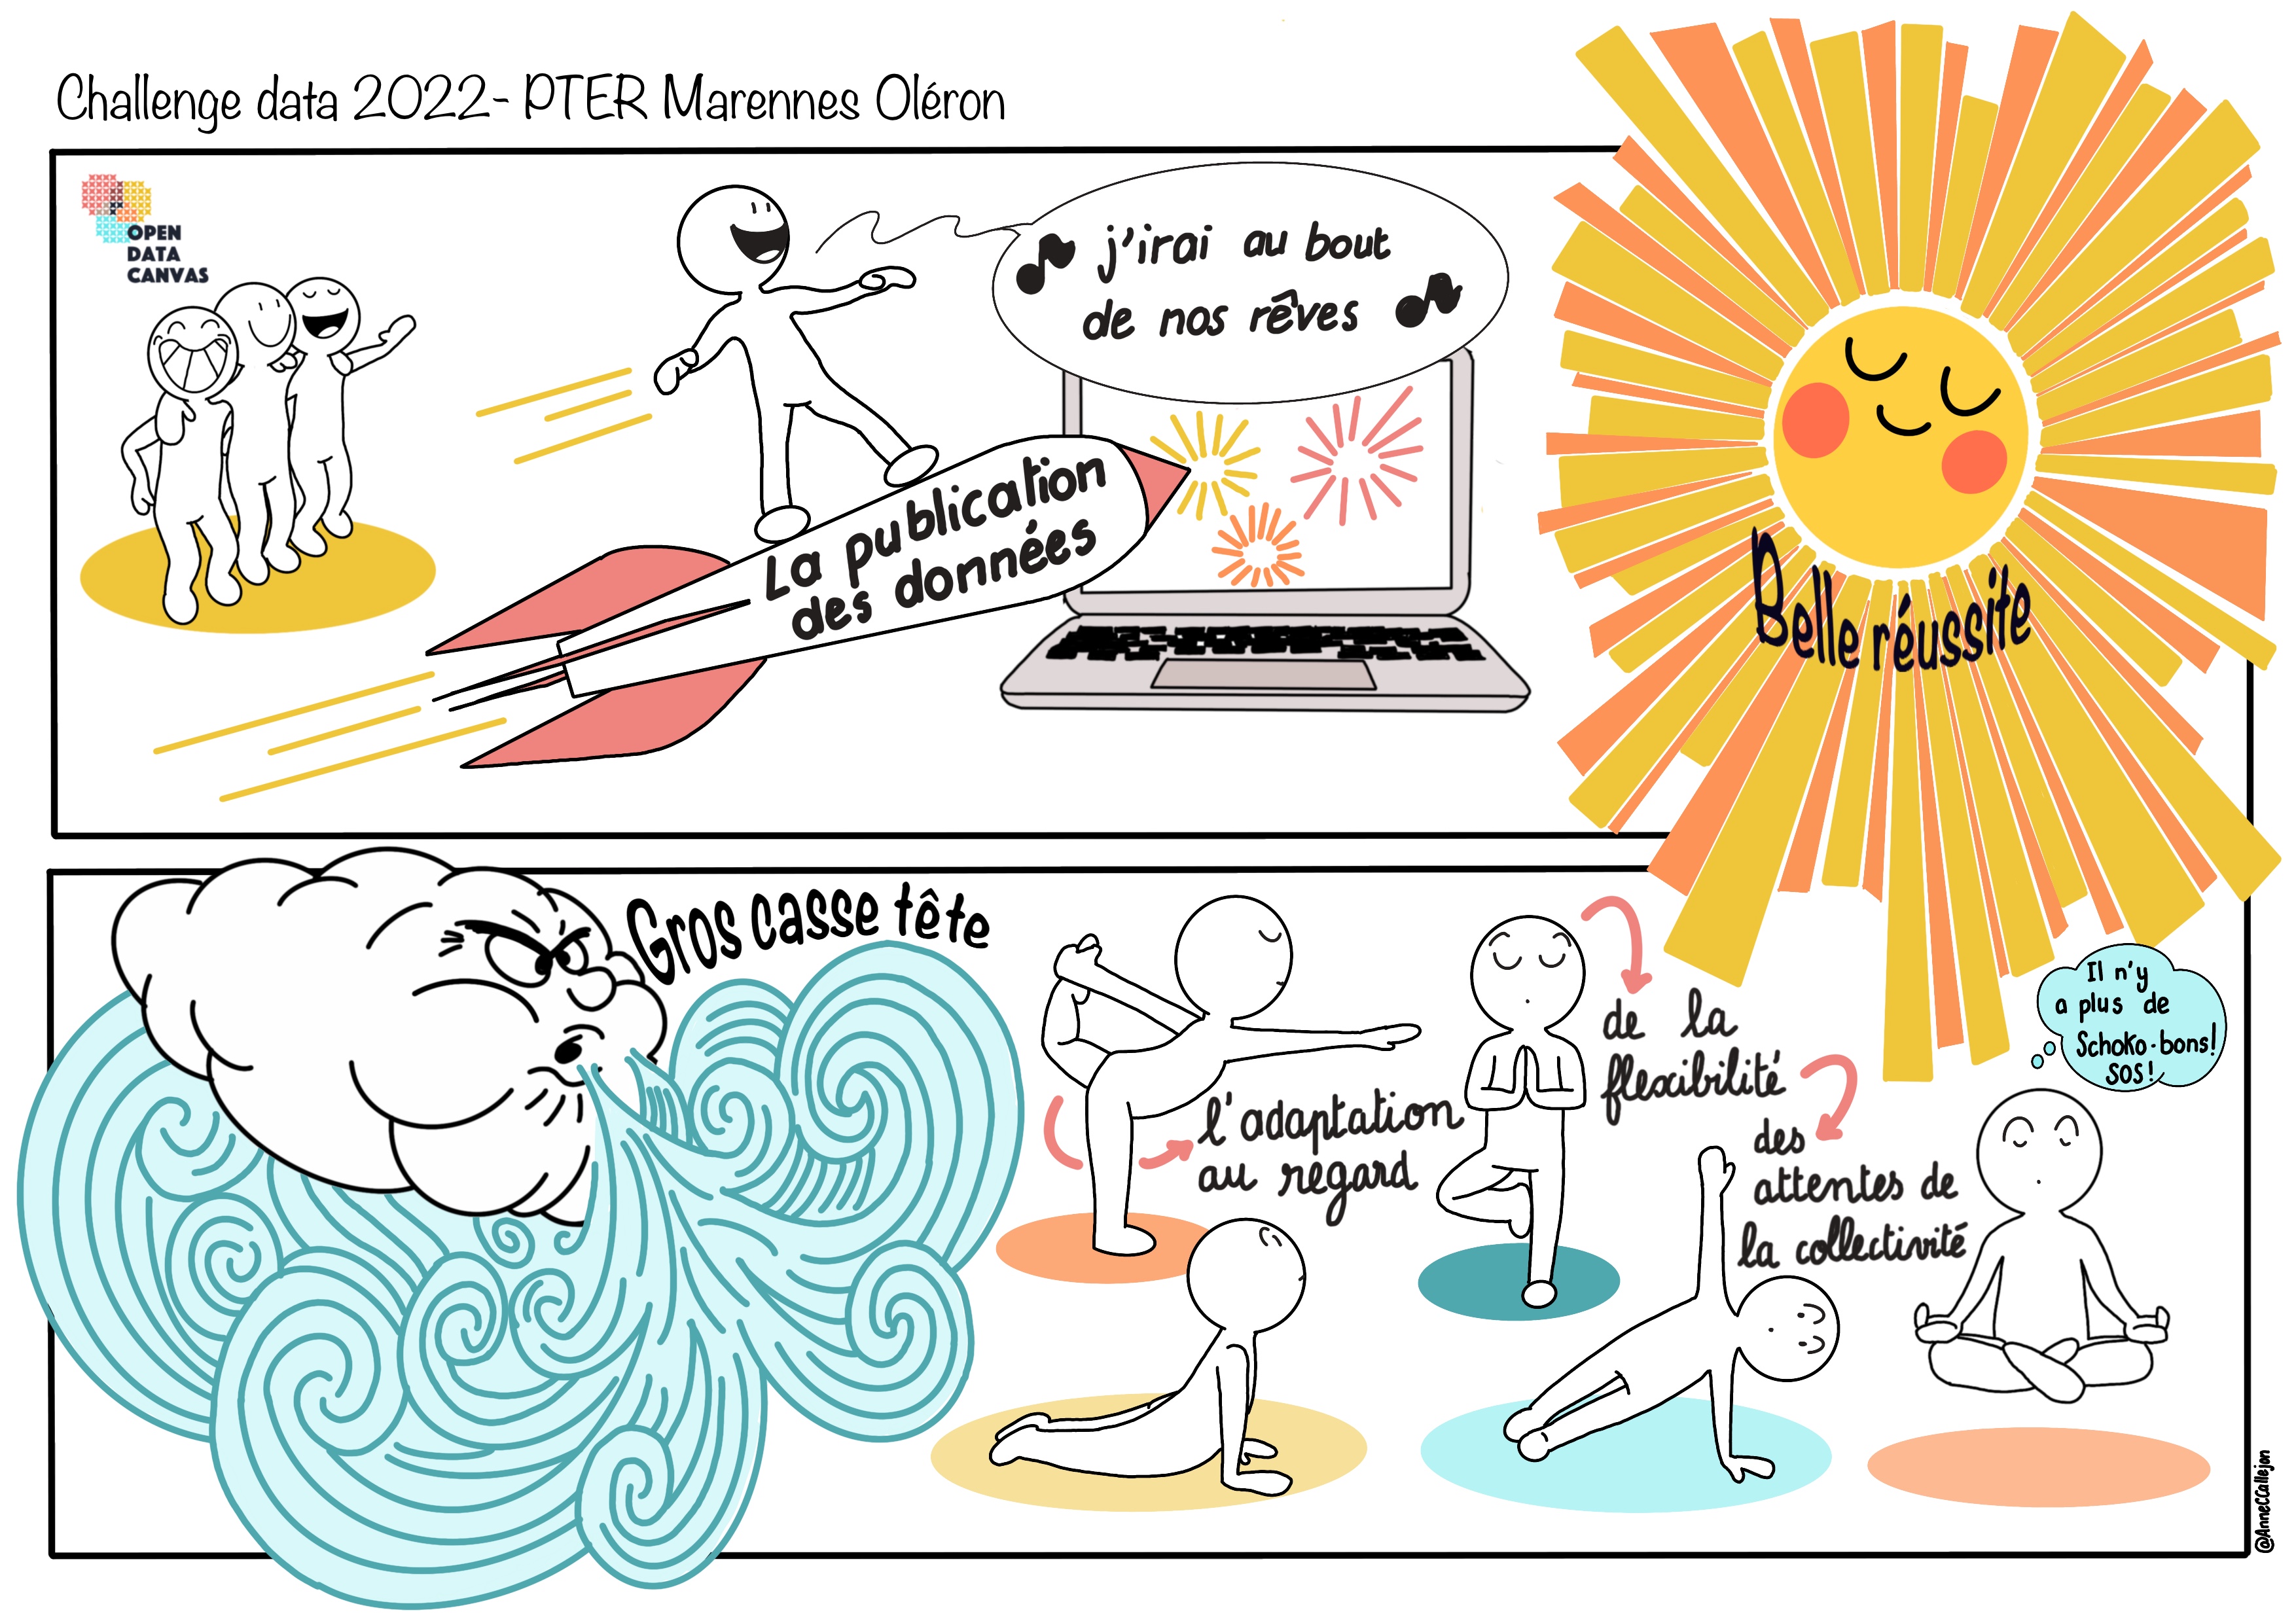 Challenge data 2022- PTER Marennes Oléron
OPEN
DATA
CANVAS
j'irai au bout
de nos rêves
La publication
des données
Belle réussite
Gros casse tête
l'adaptation
au regard
de la
flexibilité
des
attentes de
la collectivité
Il n'y
a plus de
Schoko-bons!
SOS!
@AnneCCallejon